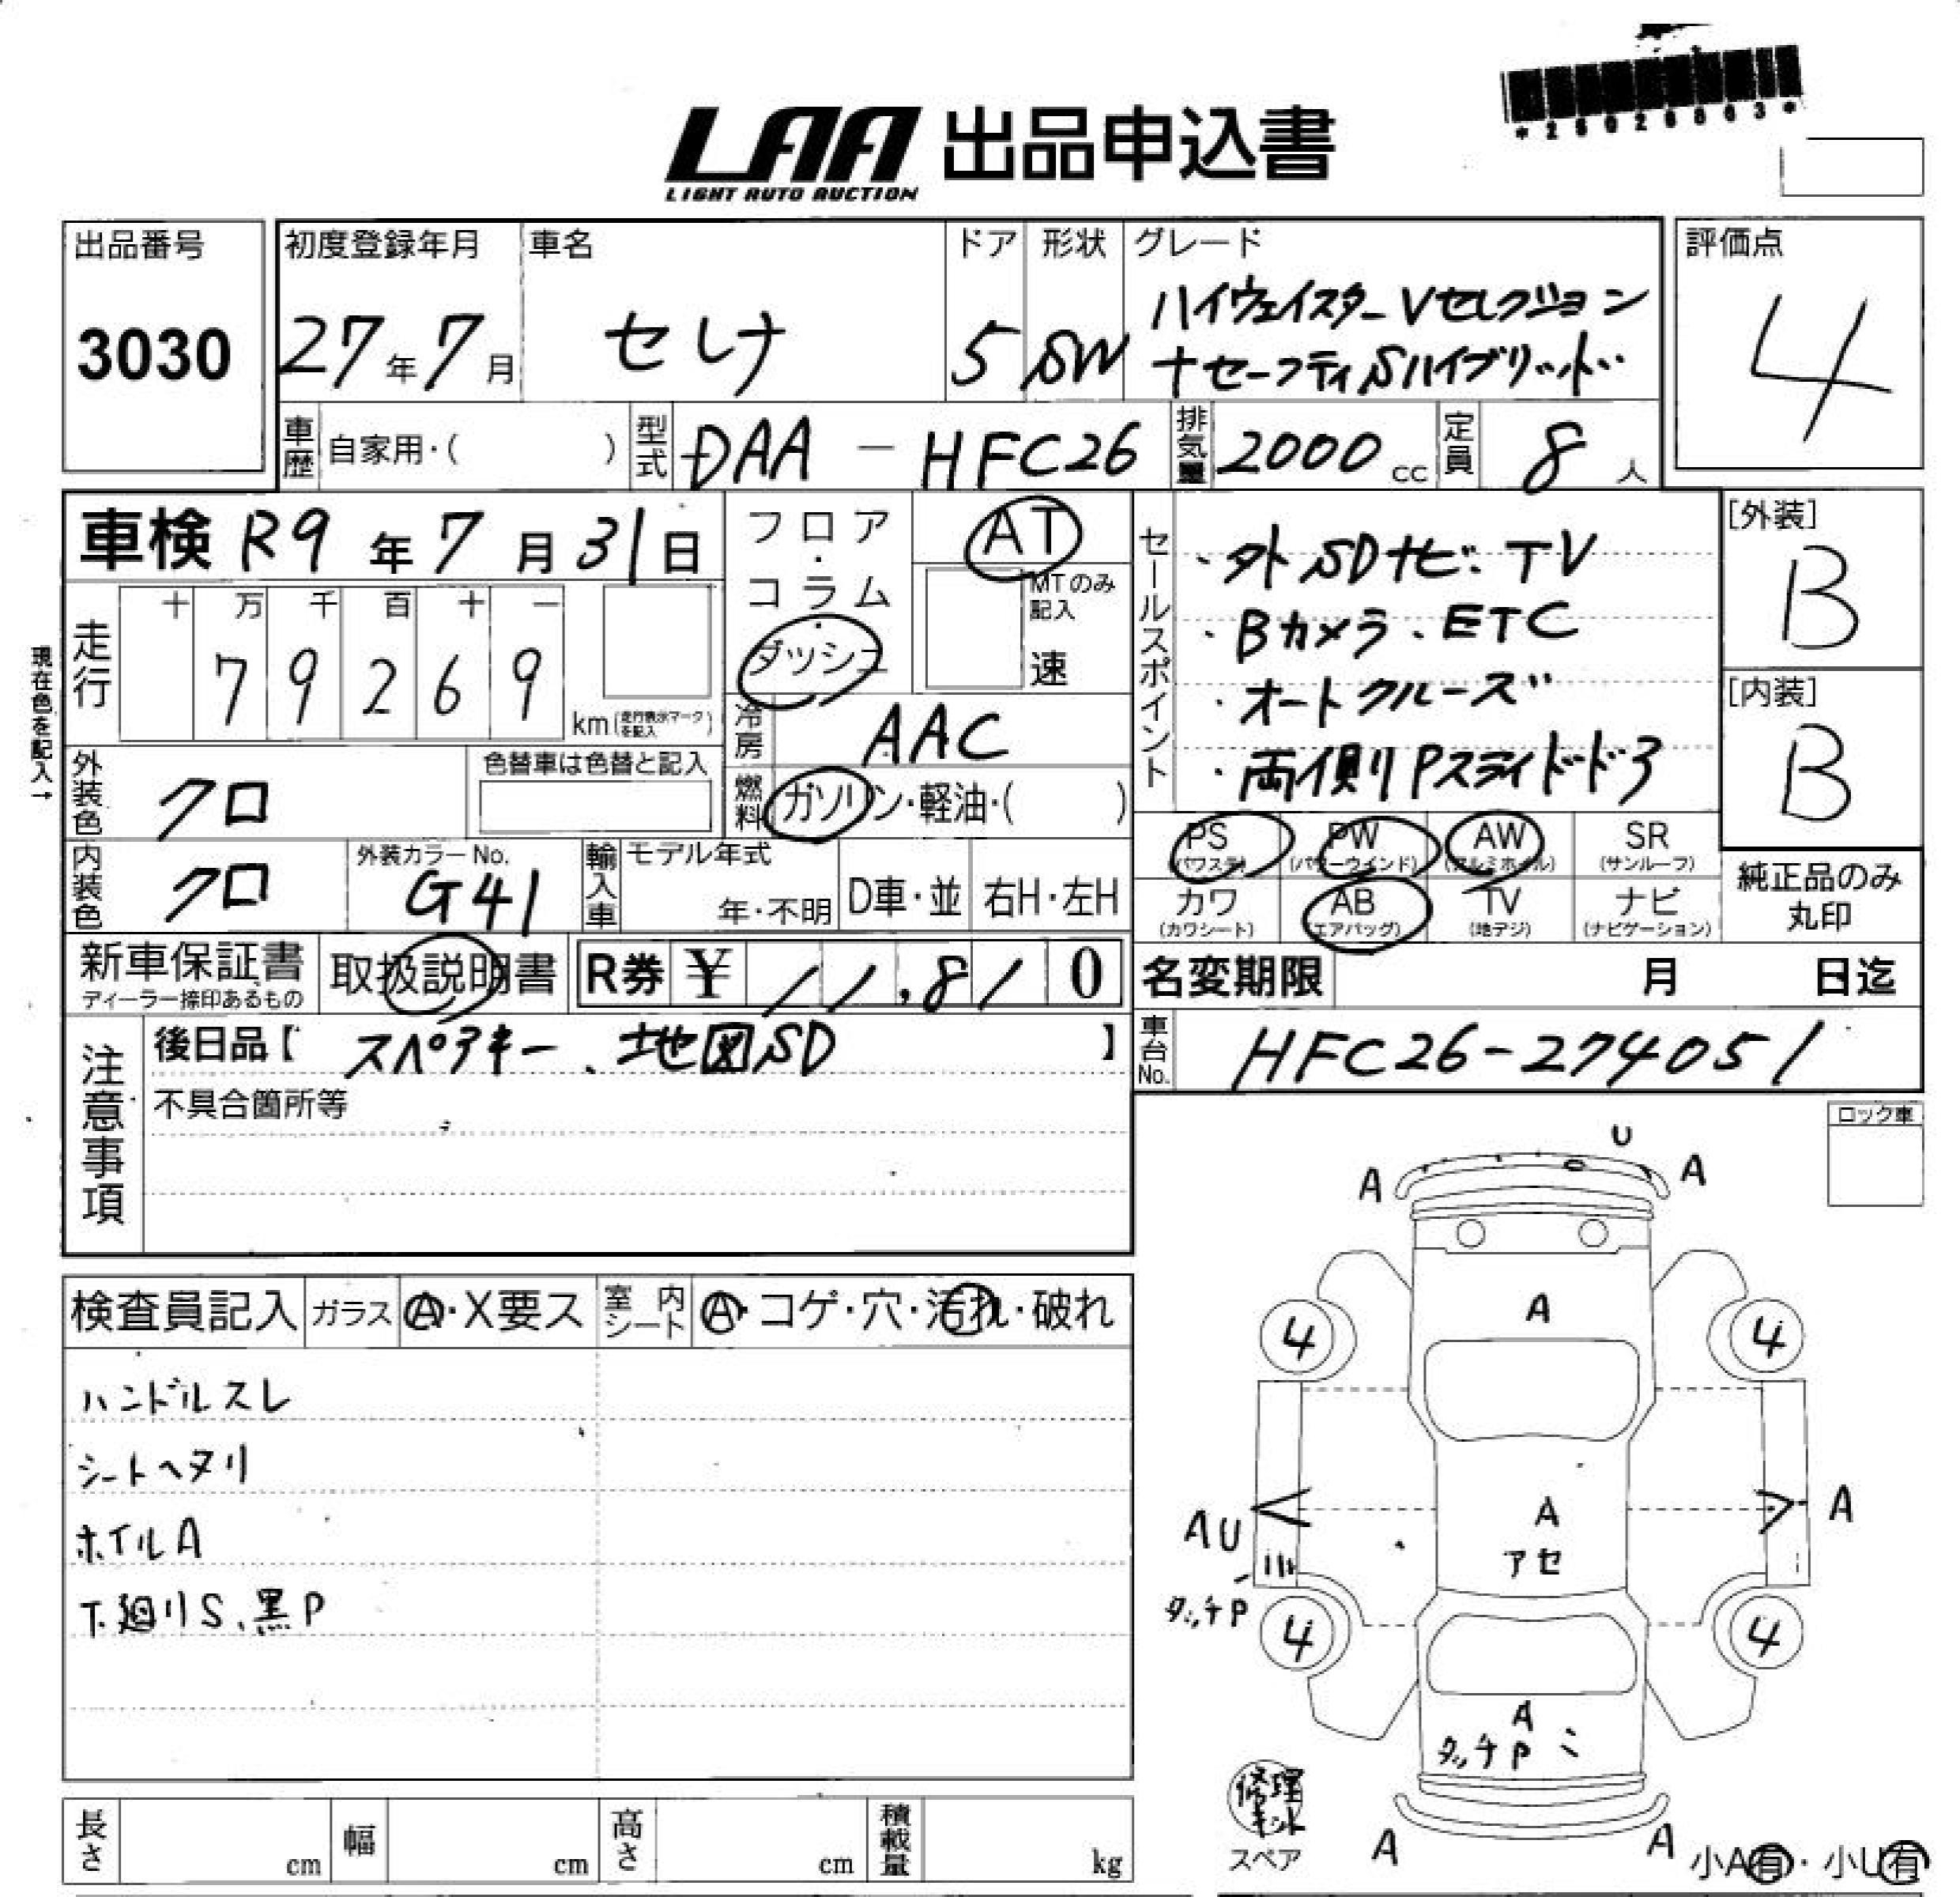 *25026803*
LAA 出品申込書
LIGHT AUTO AUCTION
出品番号
3030
初度登録年月
27年7月
車名
セレナ
ドア
5
形状
SW
グレード
ハイウェイスターVセレクション
+セーフティSハイブリッド
評価点
4
車歴 自家用・( )
型式 DAA - HFC26
排気量 2000cc
定員 8人
車検 R9年7月31日
現在色を記入→
走行 十 万 千 百 十 一
79269
km(走行表示マークを記入)
フロア・コラム・ダッシュ
AT
MTのみ記入
速
冷房 AAC
燃料 ガソリン・軽油・( )
外装色 クロ
色替車は色替と記入
内装色 クロ
外装カラーNo.
G41
輸入車 モデル年式
年・不明
D車・並
右H・左H
セールスポイント
・外SDナビ.TV
・Bカメラ.ETC
・オートクルーズ
・両側Pスライドドア
[外装]
B
[内装]
B
PS
(パワステ)
PW
(パワーウインド)
AW
(アルミホイル)
SR
(サンルーフ)
カワ
(カワシート)
AB
(エアバッグ)
TV
(地デジ)
ナビ
(ナビゲーション)
純正品のみ
丸印
新車保証書
ディーラー捺印あるもの
取扱説明書
R券 ¥ 11,810
名変期限 月 日迄
車台No. HFC26-274051
注意事項
後日品【 スペアキー、地図SD 】
不具合箇所等
ロック車
検査員記入 ガラス A・X要ス 室内シート A・コゲ・穴・汚れ・破れ
ハンドルスレ
シートヘタリ
ホイルA
下廻りS、黒P
U
A
A
A
4
4
A
アセ
AU
タッチP
A
4
4
A
タッチP
修理キット
スペア
A
A
小A有・小U有
長さ cm
幅 cm
高さ cm
積載量 kg